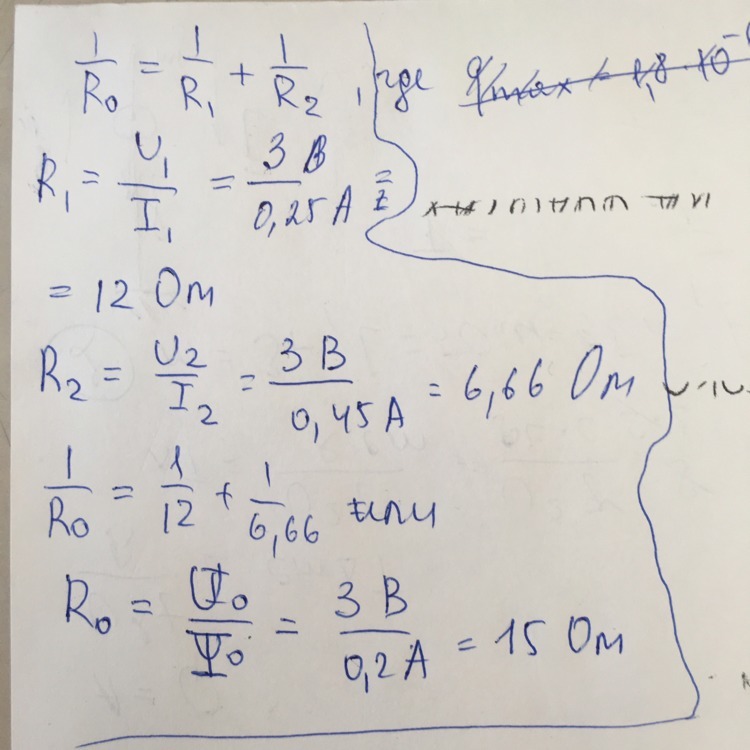 1/R₀ = 1/R₁ + 1/R₂, где
R₁ = U₁/I₁ = 3 В/0,25 А =
= 12 Ом
R₂ = U₂/I₂ = 3 В/0,45 А = 6,66 Ом
1/R₀ = 1/12 + 1/6,66 или
R₀ = U₀/I₀ = 3 В/0,2 А = 15 Ом